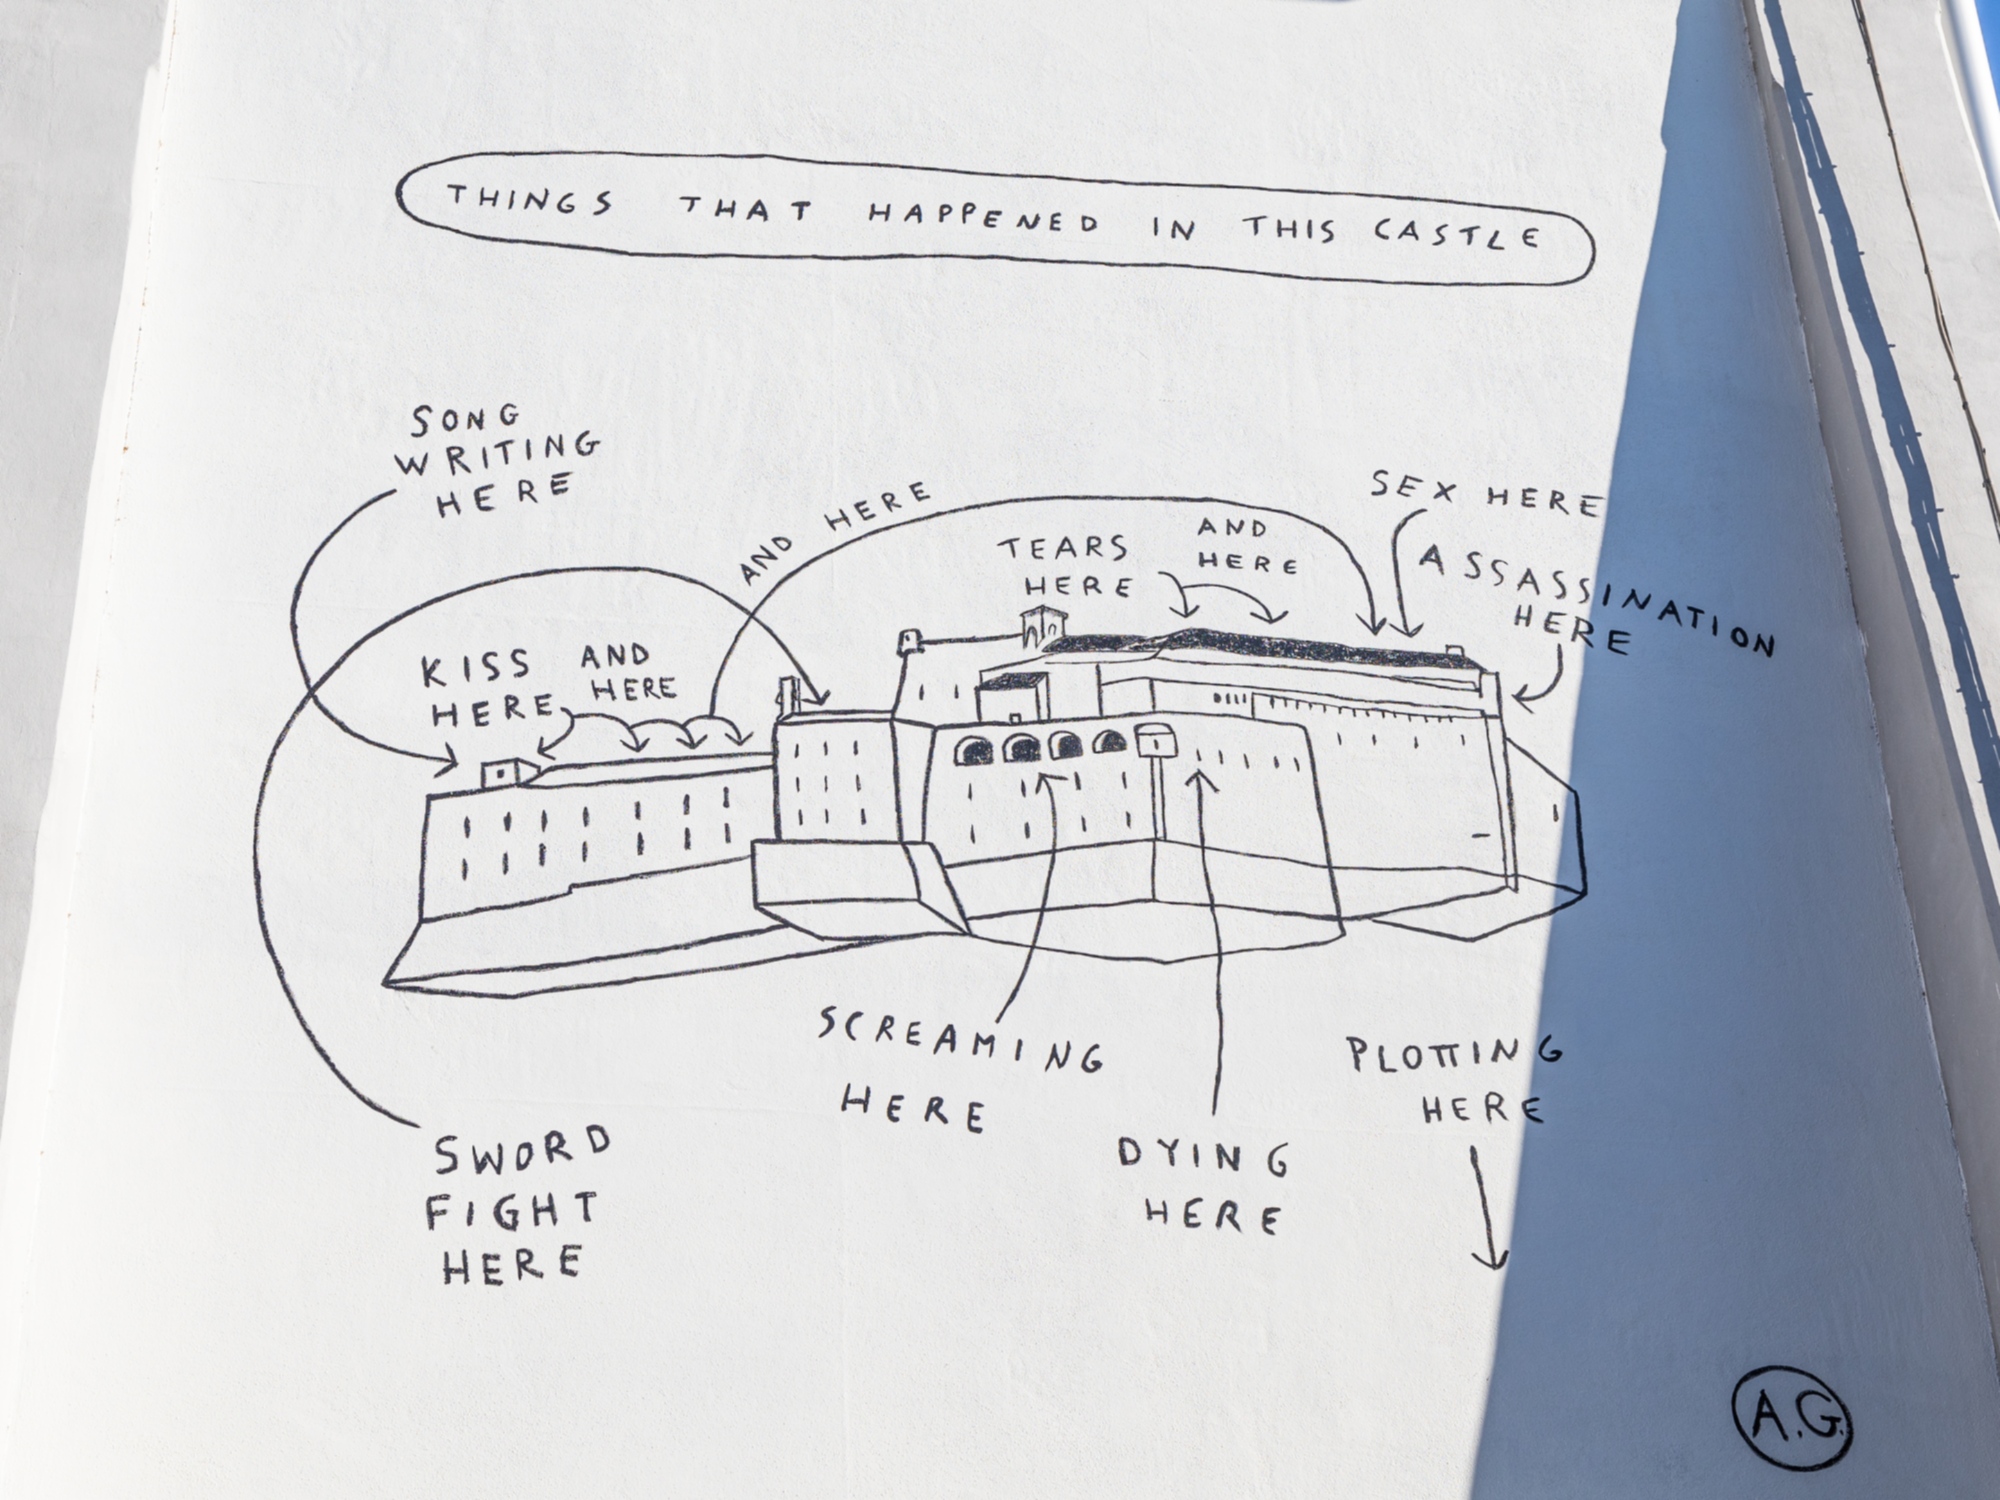 THINGS THAT HAPPENED IN THIS CASTLE
SONG
WRITING
HERE
AND HERE
SEX HERE
TEARS
HERE
AND
HERE
ASSASSINATION
HERE
KISS
HERE
AND
HERE
SCREAMING
HERE
PLOTTING
HERE
SWORD
FIGHT
HERE
DYING
HERE
A.G.